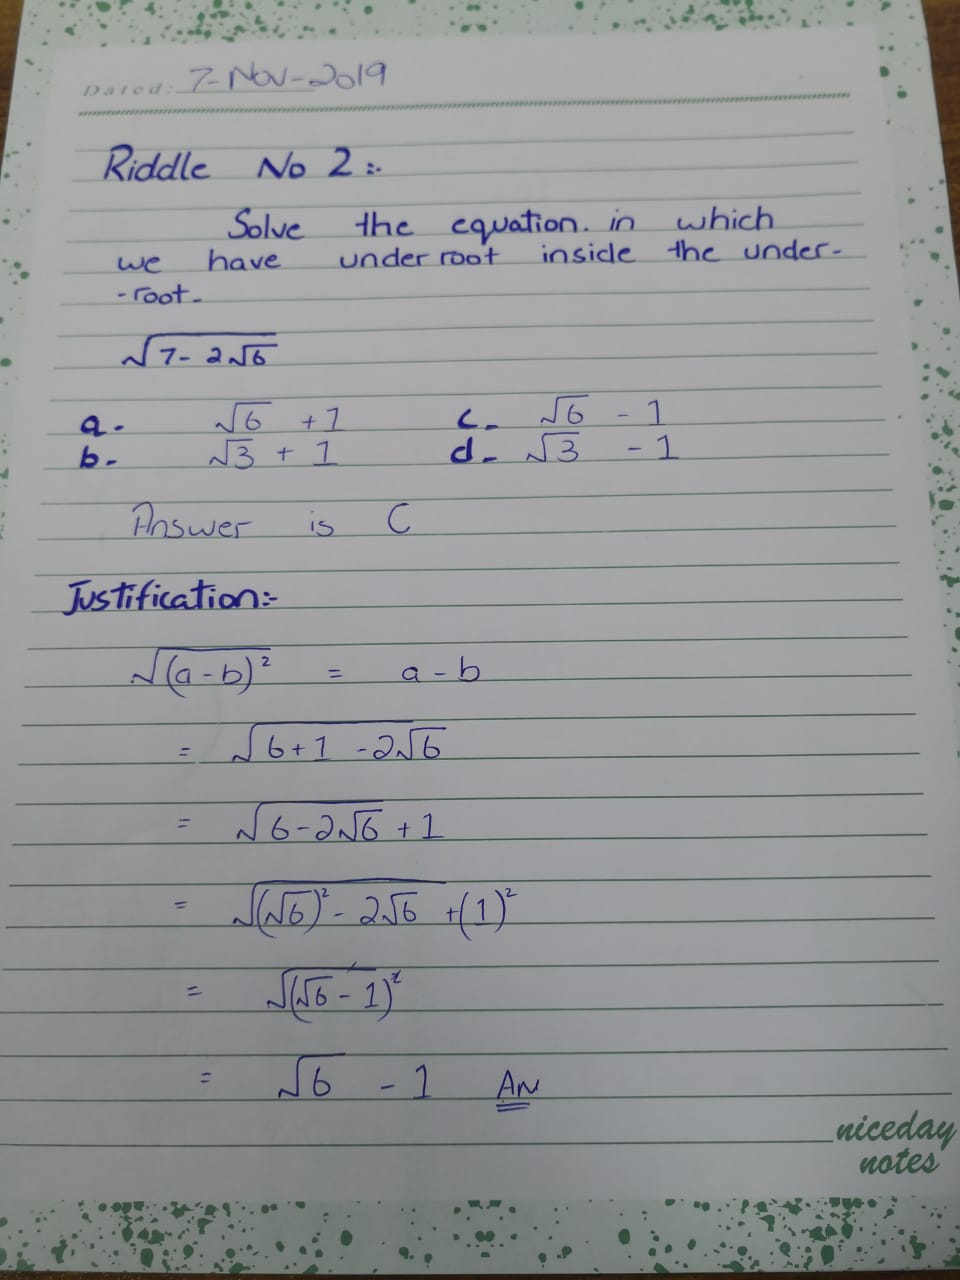 Dated: 7-Nov-2019
Riddle No 2:-
Solve the equation. in which
we have under root inside the under-
-root-
√(7- 2√6)
a- √6 +1 c- √6 - 1
b- √3 + 1 d- √3 - 1
Answer is C
Justification:-
√(a-b)² = a-b
= √(6+1 -2√6)
= √(6-2√6 +1)
= √((√6)² - 2√6 +(1)²)
= √(√6-1)²
= √6 - 1 AN
niceday
notes